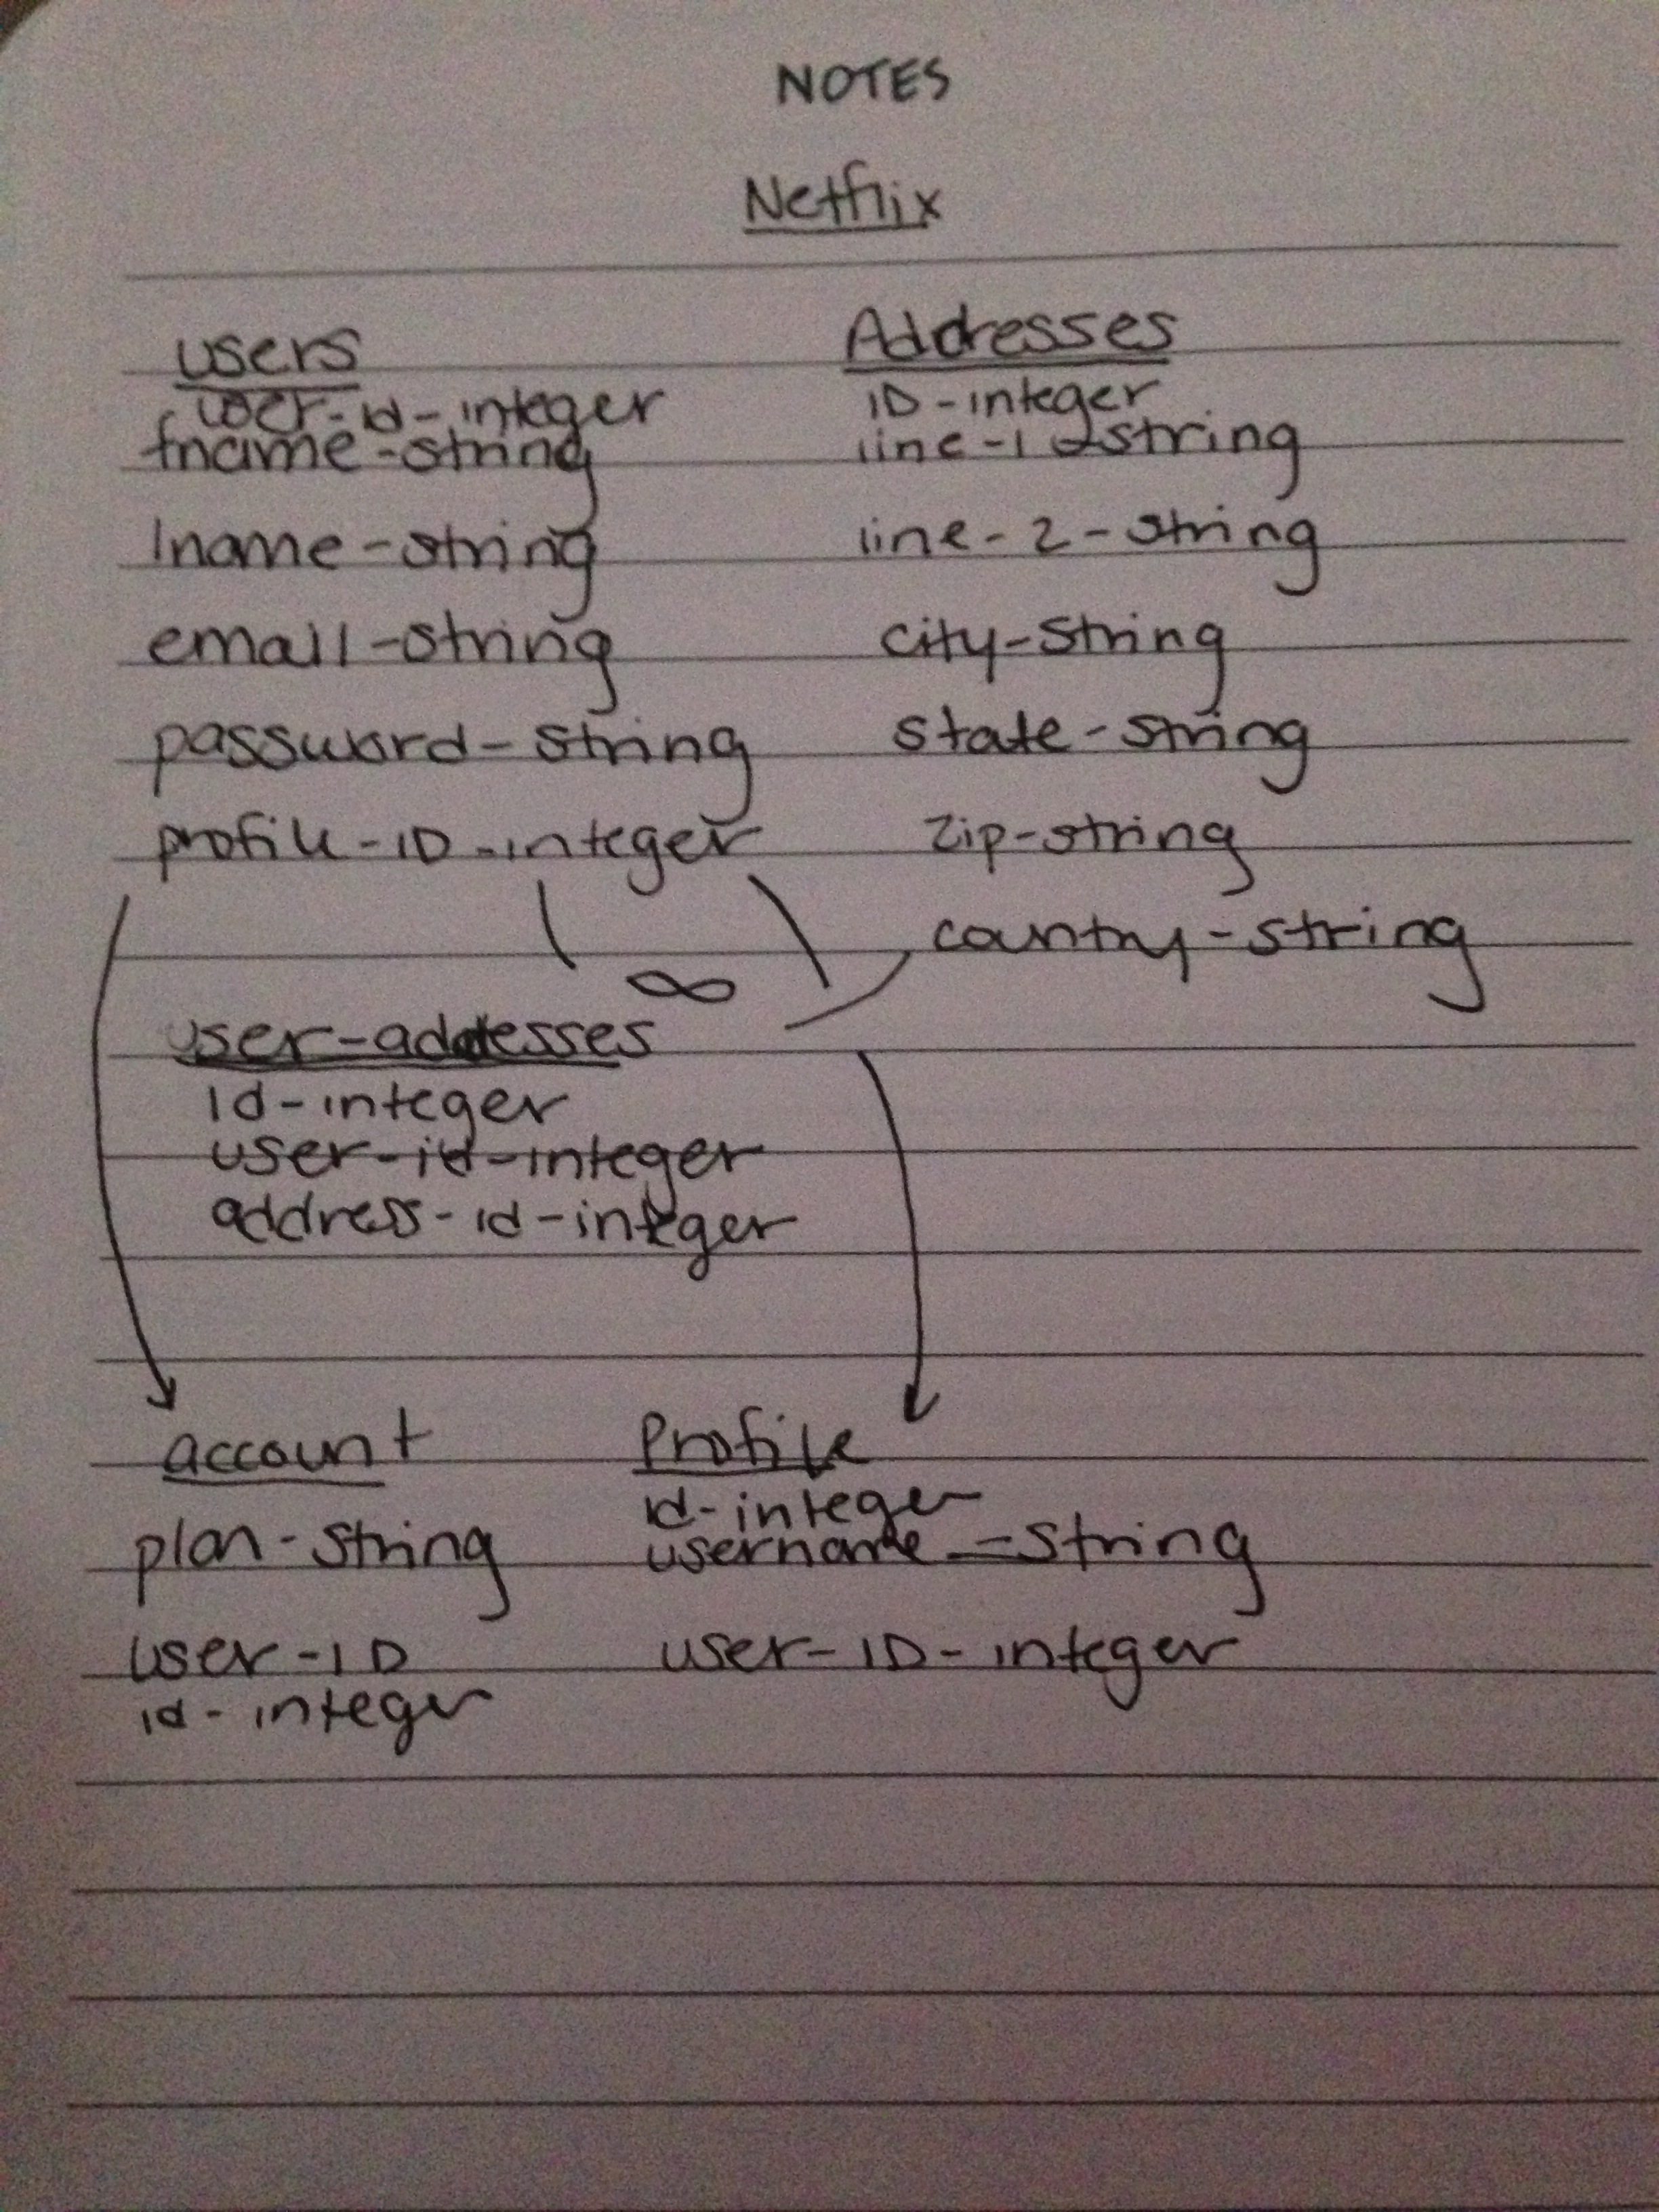 NOTES
Netflix
users
user-id-integer
fname-string
lname-string
email-string
password-string
profile-ID-integer
Addresses
ID-integer
line-1-string
line-2-string
city-string
state-string
zip-string
country-string
∞
user-addresses
id-integer
user-id-integer
address-id-integer
account
plan-string
user-ID
id-integer
Profile
id-integer
username-string
user-ID-integer